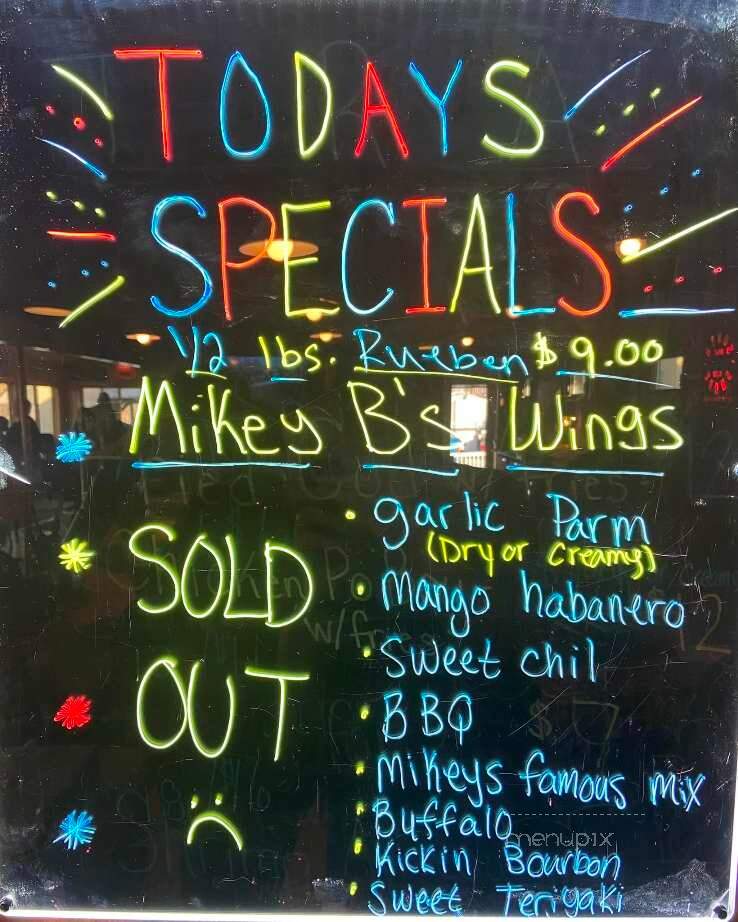 TODAYS
SPECIALS
1/2 lbs. Rueben $9.00
Mikey B's Wings
SOLD
OUT
• garlic Parm
(Dry or Creamy)
• Mango habanero
• Sweet chil
• BBQ
• Mikeys famous mix
• Buffalo
• Kickin Bourbon
• Sweet Teriyaki
menupix